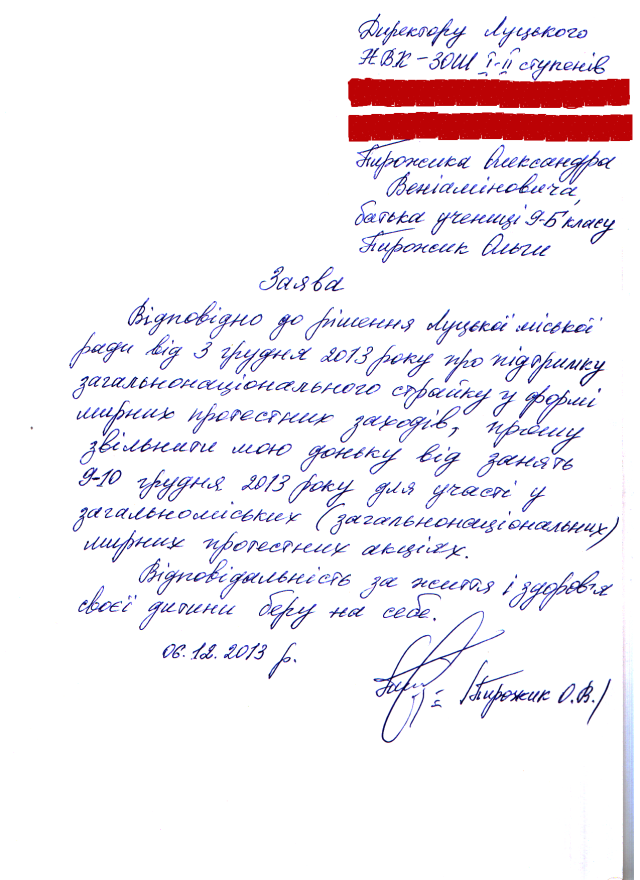 Директору Луцького
НВК - ЗОШ І-ІІ ступенів
Пирожика Олександра
Веніаміновича,
батька учениці 9-Б класу
Пирожик Ольги
Заява
Відповідно до рішення Луцької міської
ради від 3 грудня 2013 року про підтримку
загальнонаціонального страйку у формі
мирних протестних заходів, прошу
звільнити мою доньку від занять
9-10 грудня 2013 року для участі у
загальноміських (загальнонаціональних)
мирних протестних акціях.
Відповідальність за життя і здоров'я
своєї дитини беру на себе.
06.12.2013 р.
/Пирожик О.В./